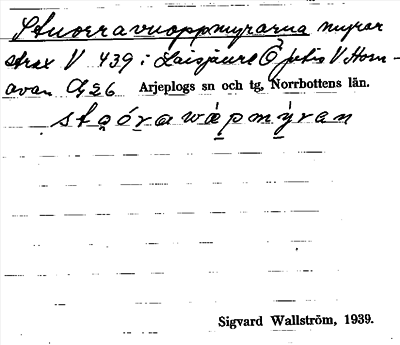 Stuorravuoppmyrarna myrar
strax V 439 i Laisjaure Ö jutis V Horn-
avan G 26 Arjeplogs sn och tg, Norrbottens län.
staórawápmýran
Sigvard Wallström, 1939.